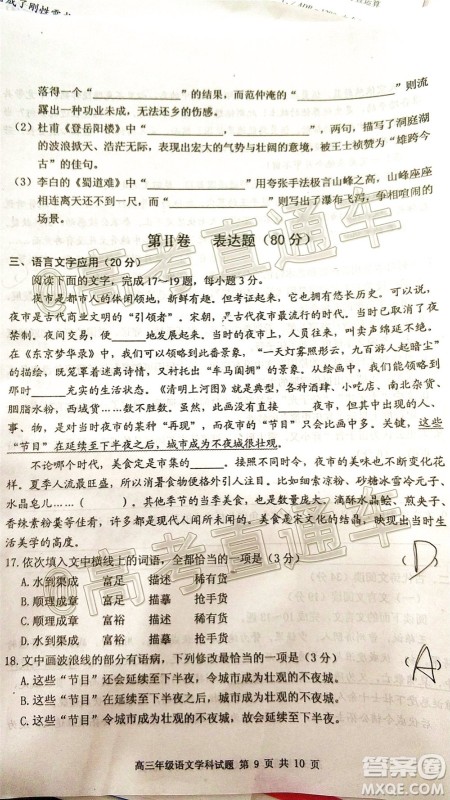 落得一个"________"的结果,而范仲淹的"________"则流
露出一种功业未成,无法还乡的伤感。
(2)杜甫《登岳阳楼》中"________,________",两句,描写了洞庭湖
的波浪掀天、浩茫无际,表现出宏大的气势与壮阔的意境,被王士桢赞为"雄跨今
古"的佳句。
(3)李白的《蜀道难》中"________,________"用夸张手法极言山峰之高,山峰座座
相连离天还不到一尺,而"________,________"则写出了瀑布飞泻,奇险热闹的
场景。
第Ⅱ卷 表达题(80分)
三、语言文字应用(20分)
阅读下面的文字,完成17~19题,每小题3分。
夜市是都市人的集体回忆,夜市是都市文化的一种,它的存在悠然长久。可以说,
夜市是古代工商业发展的"引领者"。宋代是古代夜市最流行的时代,当时突破了宵
禁的限制,夜市便________地发展起来。当时不但有商品,还有各种表演,叫卖声绵延不断。
在《东京梦华录》里,夜市景象蔚为壮观,有"一天灯雾照彤云,九百游人起暗尘"
的描绘,既笼罩着迷离幻想,更有"车马阗拥"的真实景象。从众多的文学作品里,
能看到________充实的生活状态。《清明上河图》就是典型,各种酒肆、小吃店、南北杂货、
胭脂水粉,西域贡缎……数不胜数。虽然是白天的集市,但是也可以想象出夜市里的人、
事、物,是对当时日常生活的________,而这些"节目"只多不少,而且更出彩。关键,这
些"节目"在延续至下半夜之后,城市成为不夜城很壮观。
不论哪个时代,美食是市集的________。接下来,跟着四季的时令,夜市的美味也不断变化花
样。夏季人流最旺盛,所以消暑便格外引人注目。比如细索凉粉、砂糖冰雪冷元子、
水晶皂儿……( )。其他季节的当季美食,也是花样多变,滴酥水晶鲙、煎夹子、
香辣素粉羹要尝尝,旋炙猪皮肉也受欢迎。美食是宋文化的结晶,也映照出当时
生活的美学。
17.依次填入文中横线上的词语,全都恰当的一项是(3分) ( D )
A.水到渠成 富足 描述 稀有货
B.顺理成章 富足 描摹 抢手货
C.顺理成章 富裕 描述 稀有货
D.水到渠成 富裕 描摹 抢手货
18.文中画波浪线的部分有语病,下列修改最恰当的一项是(3分) ( A )
A.这些"节目"还会延续至下半夜,令城市成为壮观的不夜城。
B.这些"节目"在延续至下半夜之后,令城市成为壮观的不夜城。
C.这些"节目"令城市成为壮观的不夜城,在延续至下半夜之后。
高三年级语文学科试题 第9页 共10页
@高考直通车
@高考直通车
答案圈
MXQE.COM